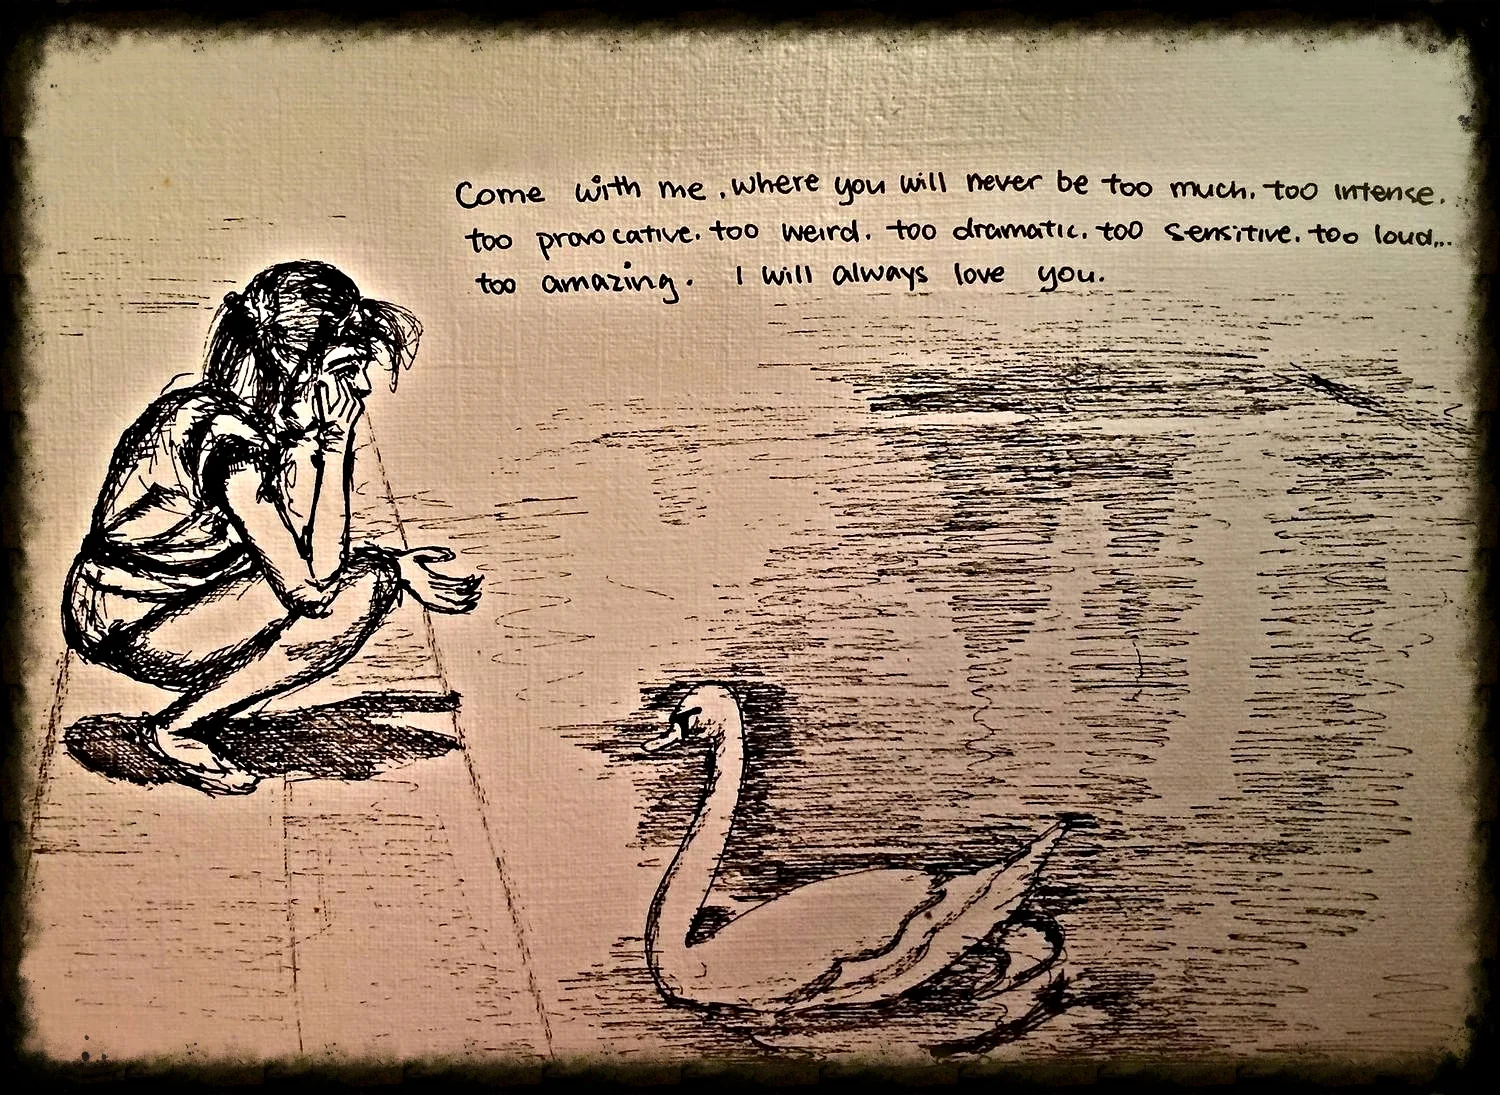 Come with me, where you will never be too much. too intense.
too provocative. too weird. too dramatic. too sensitive. too loud...
too amazing. I will always love you.